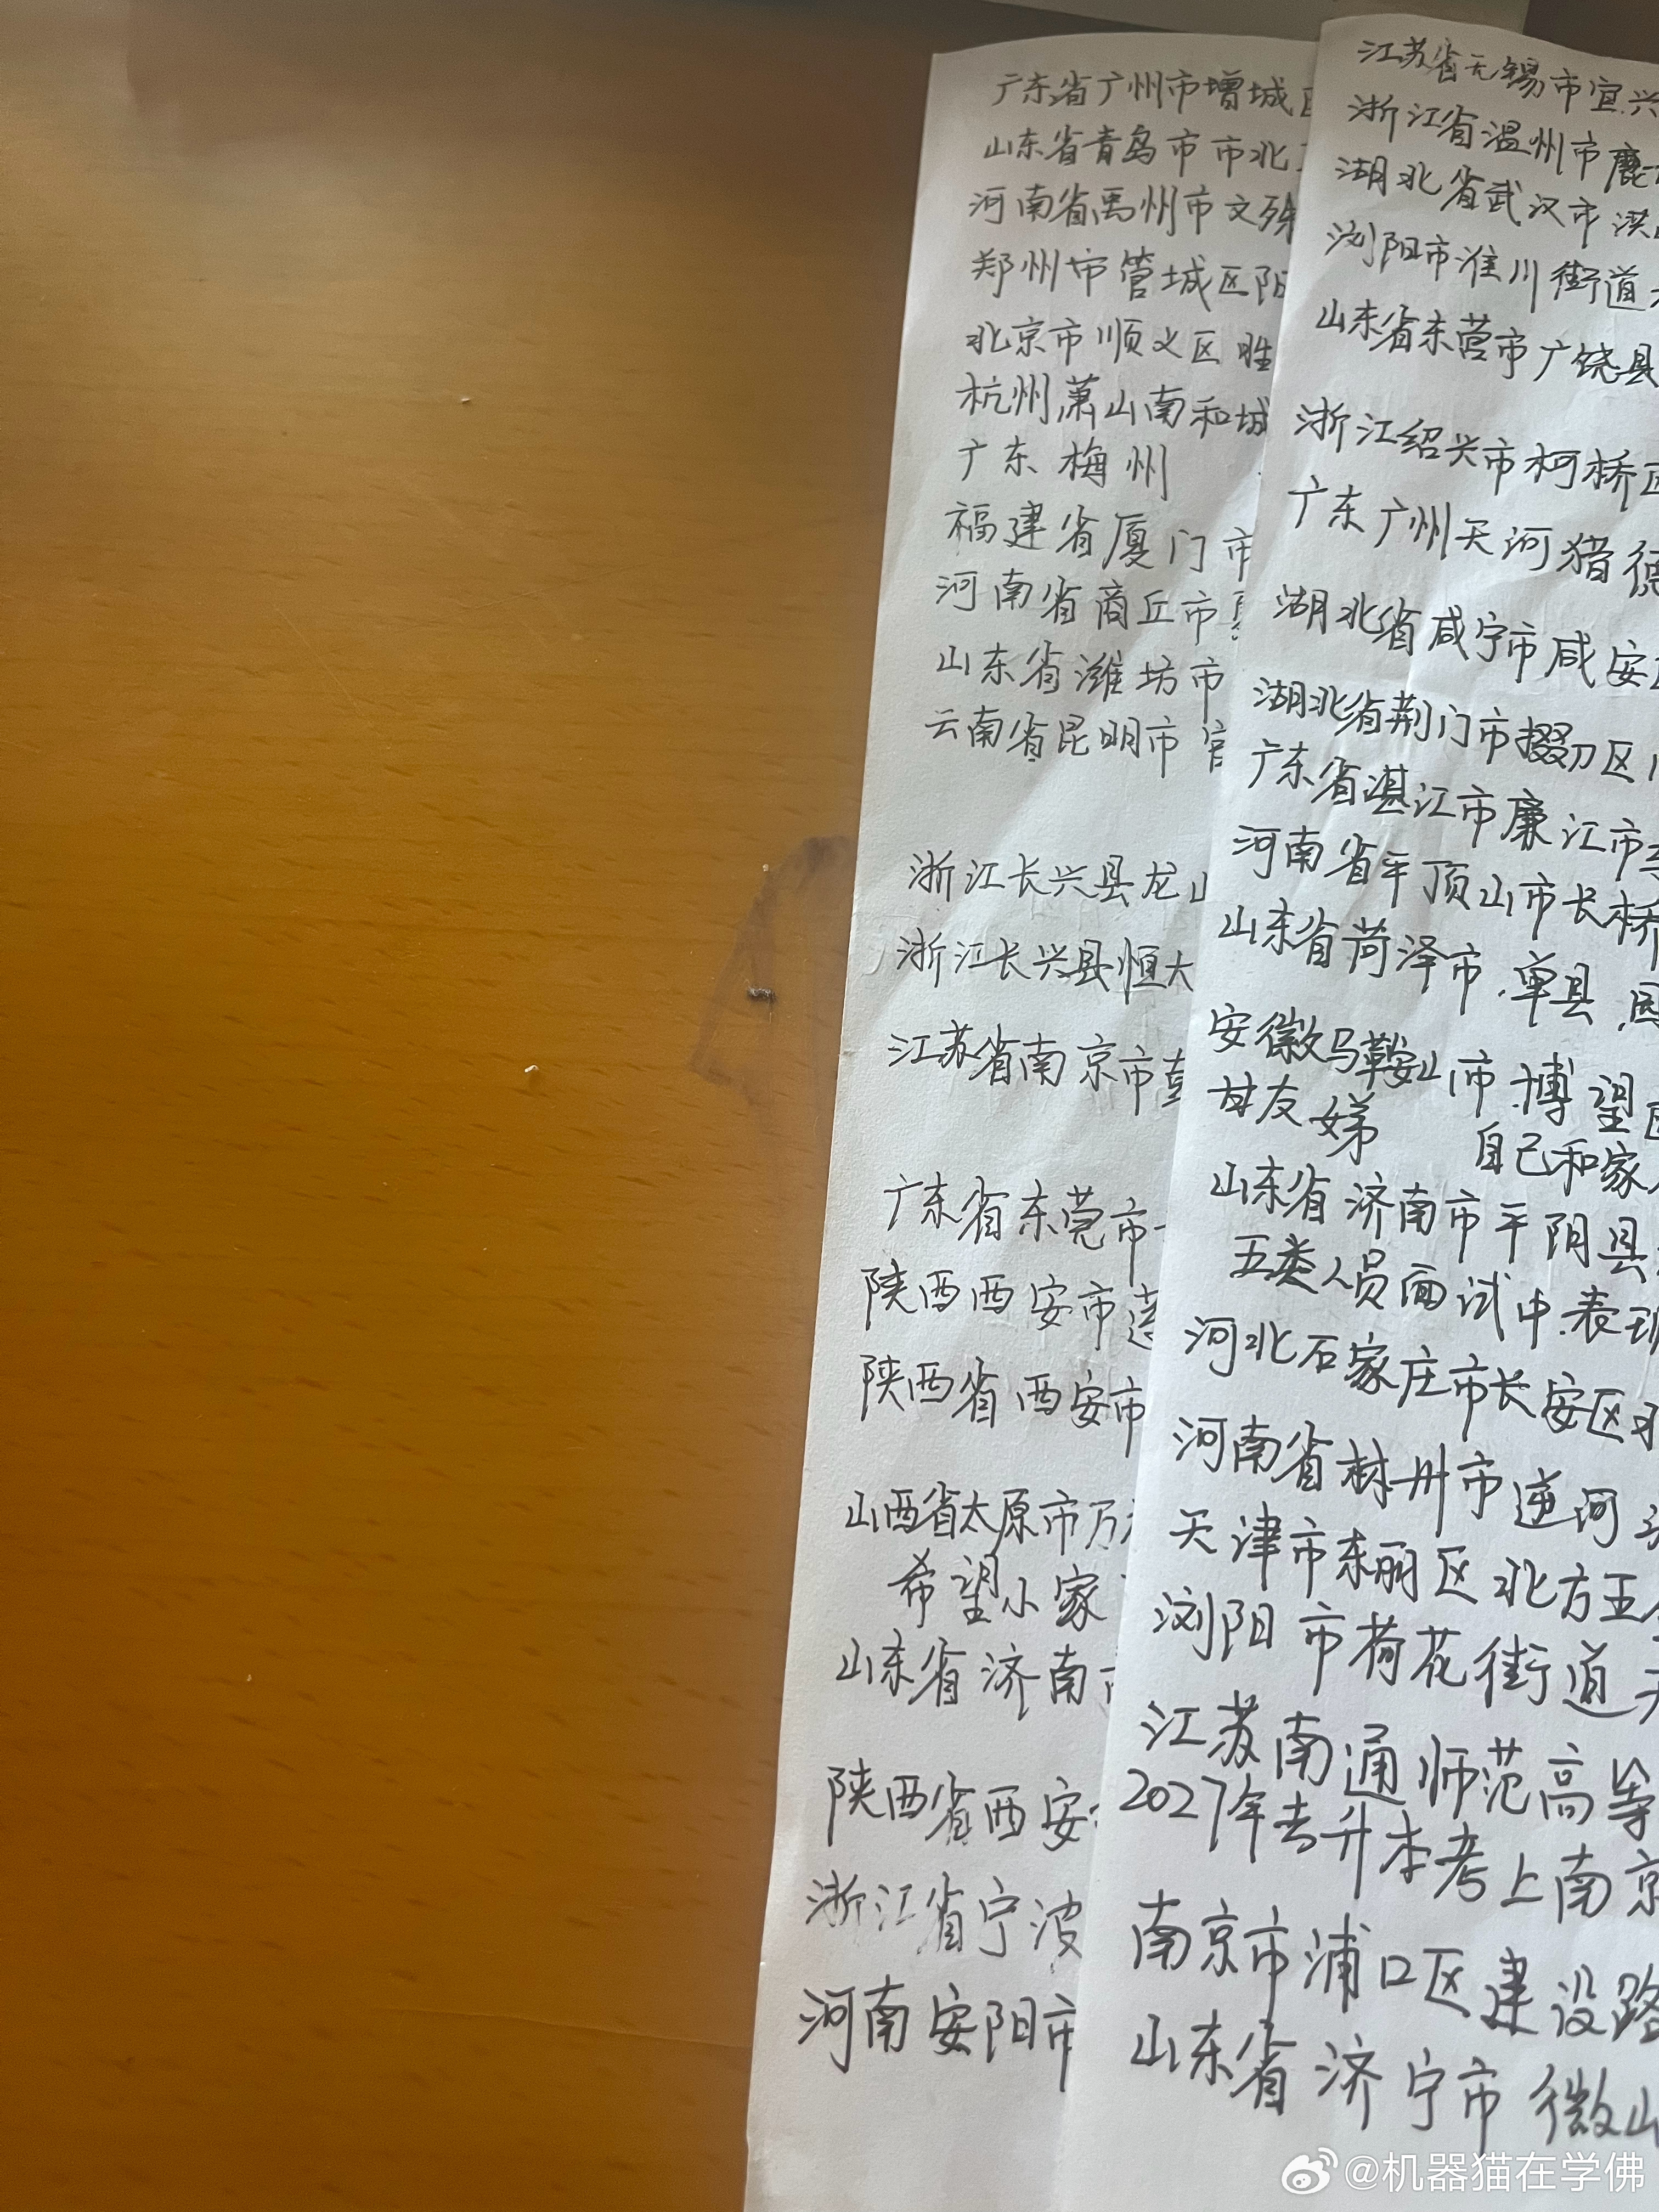 广东省广州市增城
山东省青岛市市北
河南省禹州市文殊
郑州市管城区阳
北京市顺义区胜
杭州萧山南和城
广东梅州
福建省厦门市
河南省商丘市
山东省潍坊市
云南省昆明市官
浙江长兴县龙山
浙江长兴县恒大
江苏省南京市
广东省东莞市
陕西西安市莲
陕西省西安市
山西省太原市万
希望小家
山东省济南
陕西省西安
浙江省宁波
河南安阳市
江苏省无锡市宜兴
浙江省温州市鹿
湖北省武汉市洪
浏阳市淮川街道
山东省东营市广饶县
浙江绍兴市柯桥区
广东广州天河猎德
湖北省咸宁市咸安区
湖北省荆门市掇刀区
广东省湛江市廉江市
河南省平顶山市长桥
山东省菏泽市.单县.
安徽马鞍山市.博望区
甘友娣 自己和家人
山东省济南市平阴县
五类人员面试中.表现
河北石家庄市长安区
河南省林州市逆河
天津市东丽区北方五金
浏阳市荷花街道
江苏南通师范高等
2027年专升本考上南京
南京市浦口区建设路
山东省济宁市微山
@机器猫在学佛